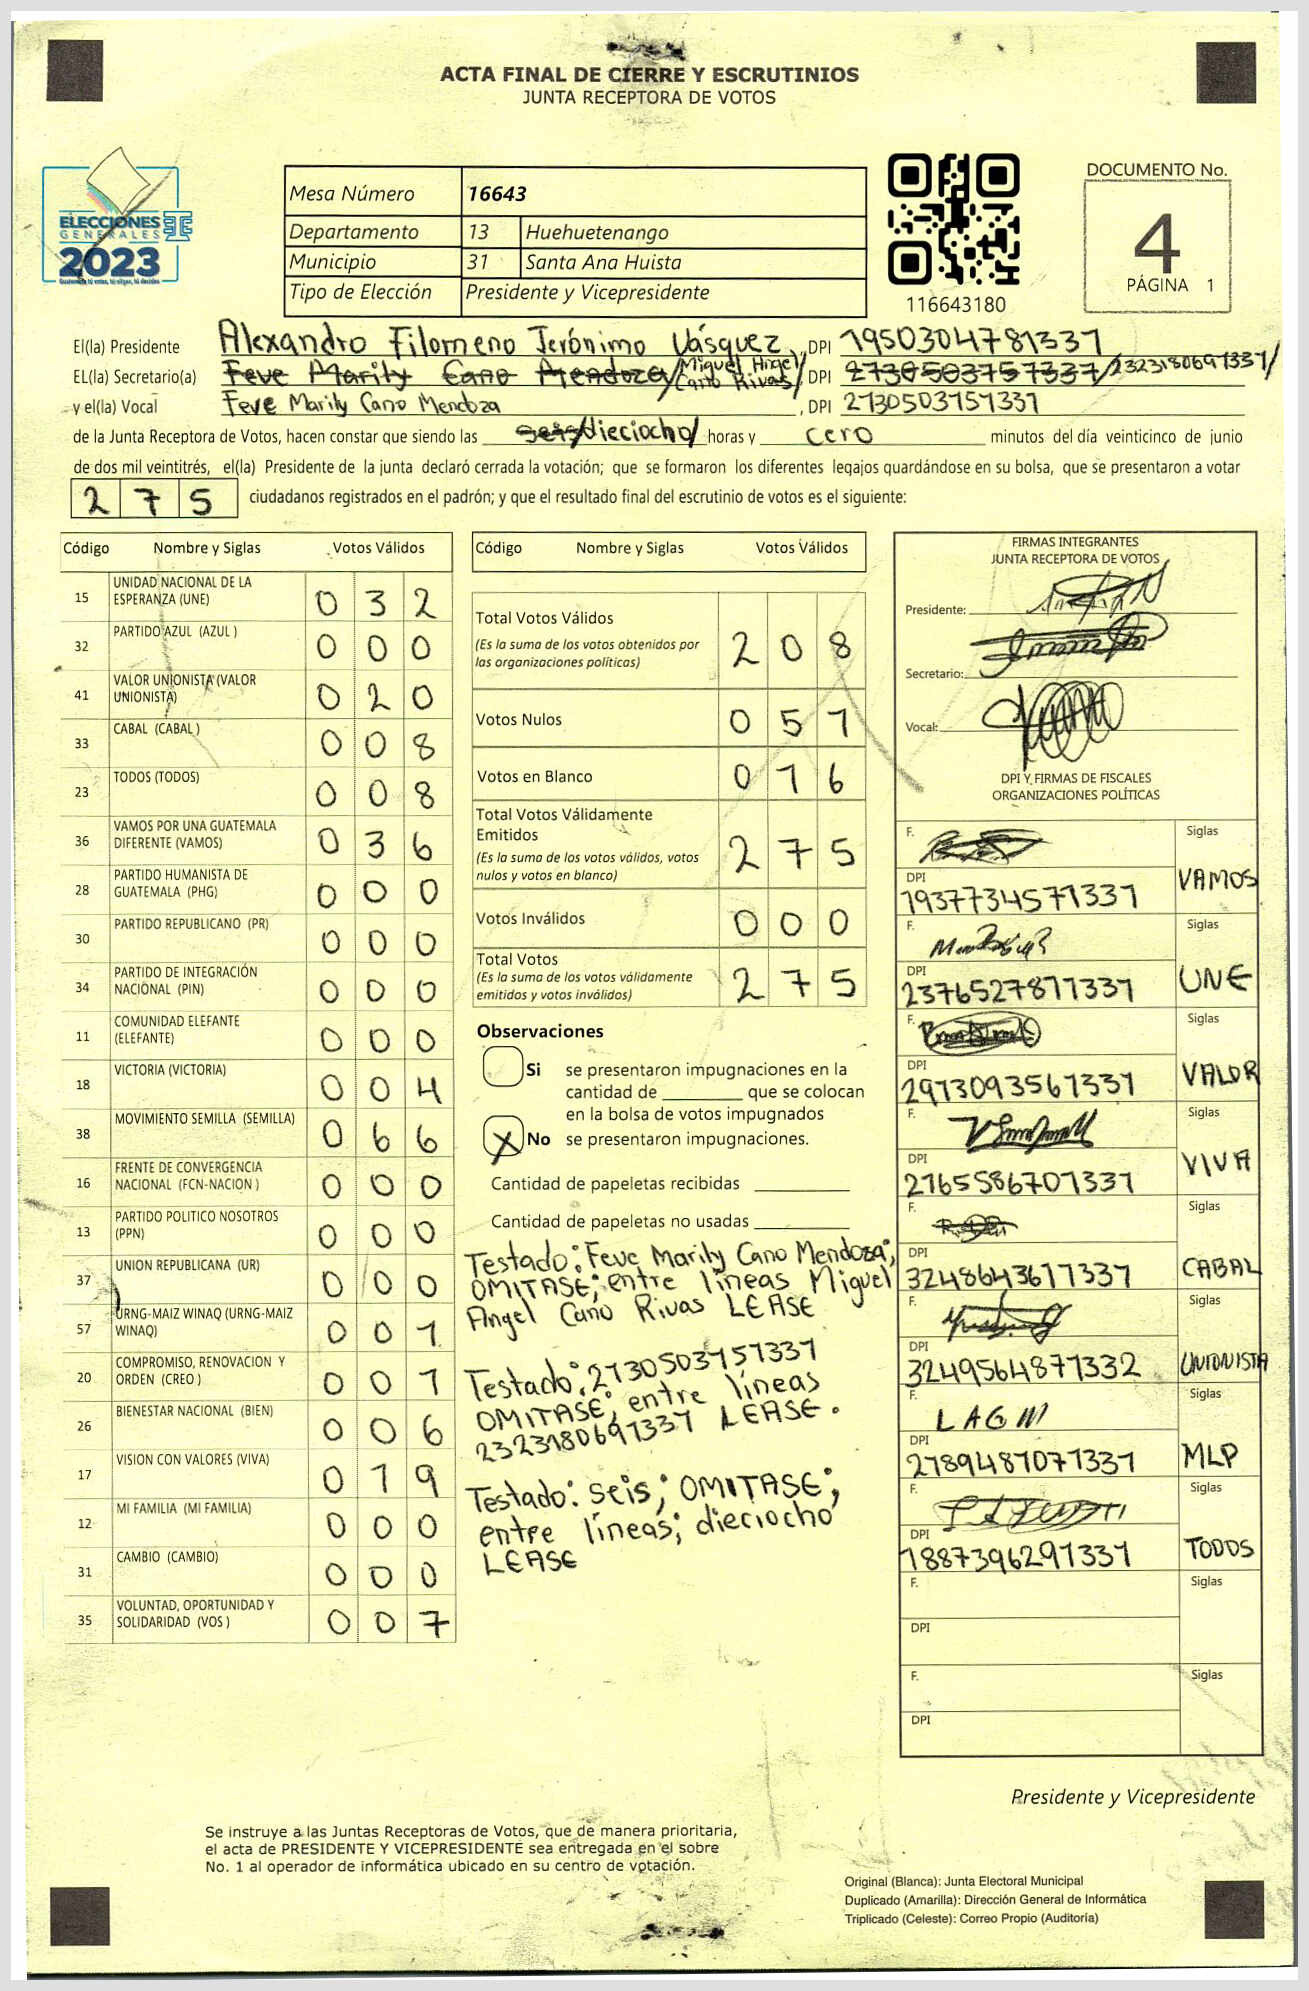 ACTA FINAL DE CIERRE Y ESCRUTINIOS
JUNTA RECEPTORA DE VOTOS
ELECCIONES
GENERALES
2023
Mesa Número 16643
Departamento 13 Huehuetenango
Municipio 31 Santa Ana Huista
Tipo de Elección Presidente y Vicepresidente
116643180
DOCUMENTO No.
4
PÁGINA 1
El(la) Presidente Alexandro Filomeno Jerónimo Vásquez, DPI 1950304781331
EL(la) Secretario(a) Feve Marily Cano Mendoza/Miguel Angel Cano Rivas/, DPI 2730503757337/2323180691331/
y el(la) Vocal Feve Marily Cano Mendoza, DPI 2730503151331
de la Junta Receptora de Votos, hacen constar que siendo las seis/dieciocho/ horas y cero minutos del día veinticinco de junio
de dos mil veintitrés, el(la) Presidente de la junta declaró cerrada la votación; que se formaron los diferentes legajos guardándose en su bolsa, que se presentaron a votar
275 ciudadanos registrados en el padrón; y que el resultado final del escrutinio de votos es el siguiente:
Código Nombre y Siglas Votos Válidos
15 UNIDAD NACIONAL DE LA ESPERANZA (UNE) 0 3 2
32 PARTIDO AZUL (AZUL ) 0 0 0
41 VALOR UNIONISTA (VALOR UNIONISTA) 0 2 0
33 CABAL (CABAL ) 0 0 8
23 TODOS (TODOS) 0 0 8
36 VAMOS POR UNA GUATEMALA DIFERENTE (VAMOS) 0 3 6
28 PARTIDO HUMANISTA DE GUATEMALA (PHG) 0 0 0
30 PARTIDO REPUBLICANO (PR) 0 0 0
34 PARTIDO DE INTEGRACIÓN NACIONAL (PIN) 0 0 0
11 COMUNIDAD ELEFANTE (ELEFANTE) 0 0 0
18 VICTORIA (VICTORIA) 0 0 4
38 MOVIMIENTO SEMILLA (SEMILLA) 0 6 6
16 FRENTE DE CONVERGENCIA NACIONAL (FCN-NACION ) 0 0 0
13 PARTIDO POLITICO NOSOTROS (PPN) 0 0 0
37 UNION REPUBLICANA (UR) 0 0 0
57 URNG-MAIZ WINAQ (URNG-MAIZ WINAQ) 0 0 1
20 COMPROMISO, RENOVACION Y ORDEN (CREO ) 0 0 1
26 BIENESTAR NACIONAL (BIEN) 0 0 6
17 VISION CON VALORES (VIVA) 0 1 9
12 MI FAMILIA (MI FAMILIA) 0 0 0
31 CAMBIO (CAMBIO) 0 0 0
35 VOLUNTAD, OPORTUNIDAD Y SOLIDARIDAD (VOS ) 0 0 7
Código Nombre y Siglas Votos Válidos
Total Votos Válidos 2 0 8
(Es la suma de los votos obtenidos por
las organizaciones políticas)
Votos Nulos 0 5 1
Votos en Blanco 0 1 6
Total Votos Válidamente
Emitidos 2 7 5
(Es la suma de los votos válidos, votos
nulos y votos en blanco)
Votos Inválidos 0 0 0
Total Votos 2 7 5
(Es la suma de los votos válidamente
emitidos y votos inválidos)
Observaciones
Si se presentaron impugnaciones en la
cantidad de ________ que se colocan
en la bolsa de votos impugnados
X No se presentaron impugnaciones.
Cantidad de papeletas recibidas
Cantidad de papeletas no usadas
Testado: Feve Marily Cano Mendoza;
OMITASE; entre líneas Miguel
Angel Cano Rivas LEASE
Testado: 2730503151331
OMITASE; entre líneas
2323180691331 LEASE.
Testado: seis; OMITASE;
entre líneas; dieciocho
LEASE
FIRMAS INTEGRANTES
JUNTA RECEPTORA DE VOTOS
Presidente:
Secretario:
Vocal:
DPI Y FIRMAS DE FISCALES
ORGANIZACIONES POLÍTICAS
F. Siglas
DPI 1937734571331 VAMOS
F. Siglas
DPI 2376527811331 UNE
F. Siglas
DPI 2913093561331 VALOR
F. Siglas
DPI 2765586701331 VIVA
F. Siglas
DPI 3248643611331 CABAL
F. Siglas
DPI 3249564871332 UNIONISTA
F. LAGM Siglas
DPI 2789481071331 MLP
F. Siglas
DPI 1887396291331 TODOS
F. Siglas
DPI
F. Siglas
DPI
Presidente y Vicepresidente
Se instruye a las Juntas Receptoras de Votos, que de manera prioritaria,
el acta de PRESIDENTE Y VICEPRESIDENTE sea entregada en el sobre
No. 1 al operador de informática ubicado en su centro de votación.
Original (Blanca): Junta Electoral Municipal
Duplicado (Amarilla): Dirección General de Informática
Triplicado (Celeste): Correo Propio (Auditoría)